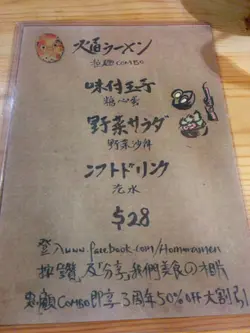 火通ラーメン
拉麵COMBO
味付玉子
糖心蛋
野菜サラダ
野菜沙律
ソフトドリンク
汽水
$28
登入www.facebook.com/Homuramen
按"讚"及"分享"我們美食の相片
惠顧COMBO即享3周年50% OFF大割引